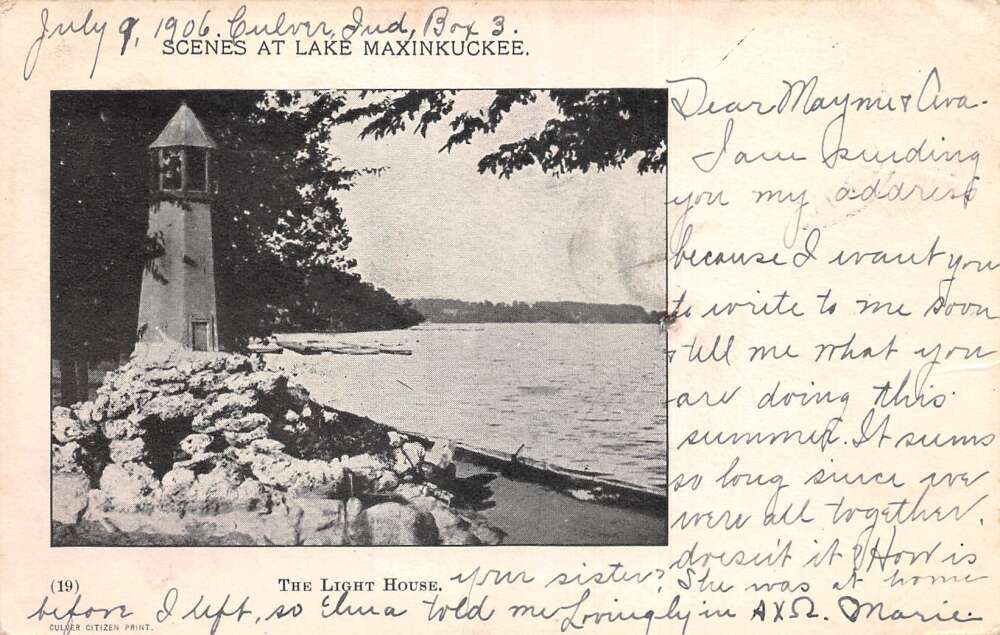 July 9, 1906. Culver, Ind, Box 3.
SCENES AT LAKE MAXINKUCKEE.
Dear Mayme & Ava-
I am sending
you my address
because I want you
to write to me soon
& tell me what you
are doing this
summer. It seems
so long since we
were all together,
doesn't it? How is
your sister? She was at home
before I left, so Elma told me. Lovingly in AXΩ. Marie.
(19)
THE LIGHT HOUSE.
CULVER CITIZEN PRINT.